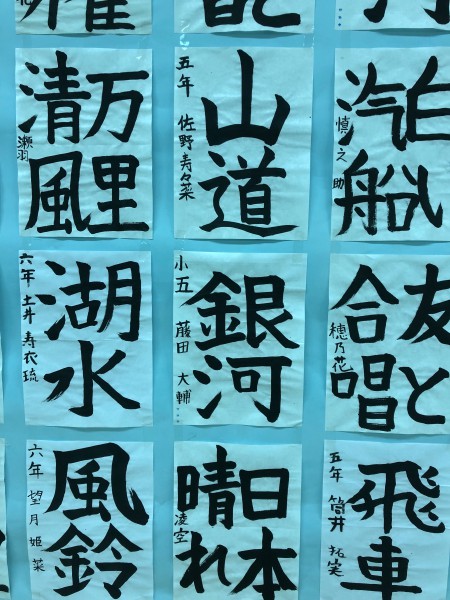 万里
清風
瀬羽
山道
五年 佐野寿々菜
白い
汽船
慎之助
湖水
六年 土井 寿衣琉
銀河
小五 藤田 大輔
友と
合唱
穂乃花
風鈴
六年 望月 姫菜
日本
晴れ
凌空
飛車
五年 筒井 拓実